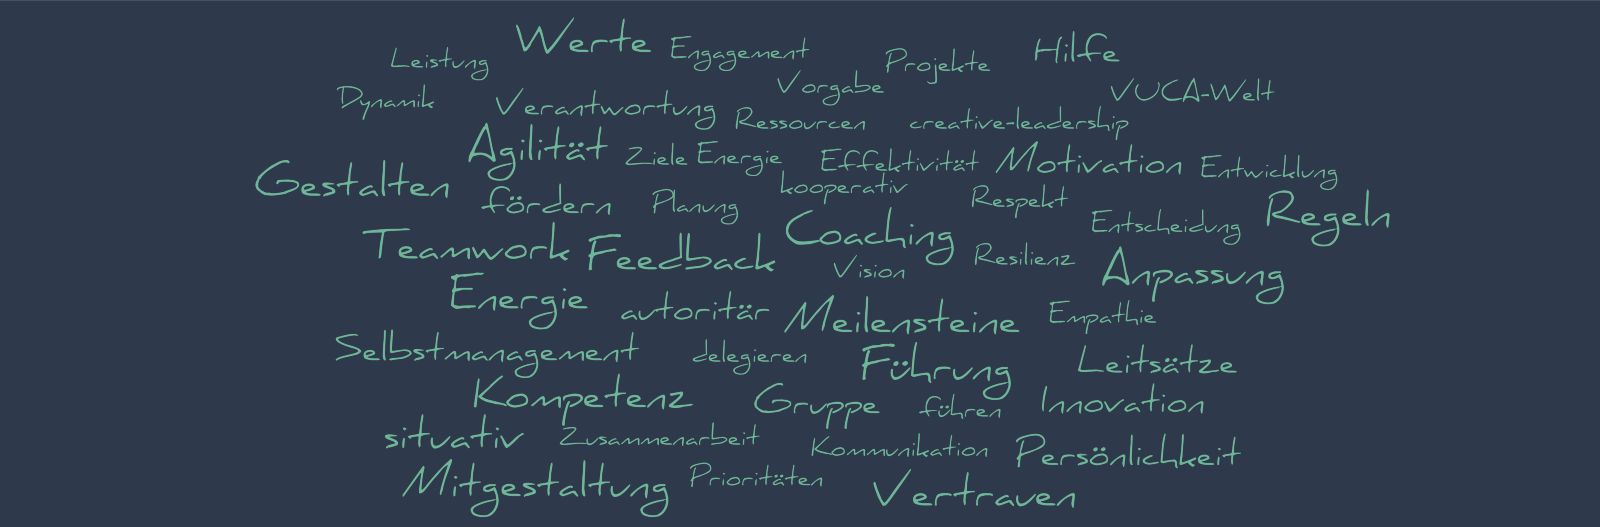 Werte Engagement Hilfe
Leistung Projekte
Dynamik Vorgabe VUCA-Welt
Verantwortung Ressourcen creative-leadership
Agilität Ziele Energie Effektivität Motivation Entwicklung
Gestalten fördern Planung kooperativ Respekt Regeln
Teamwork Feedback Coaching Entscheidung
Vision Resilienz Anpassung
Energie autoritär Meilensteine Empathie
Selbstmanagement delegieren Führung Leitsätze
Kompetenz Gruppe führen Innovation
situativ Zusammenarbeit Kommunikation Persönlichkeit
Mitgestaltung Prioritäten Vertrauen